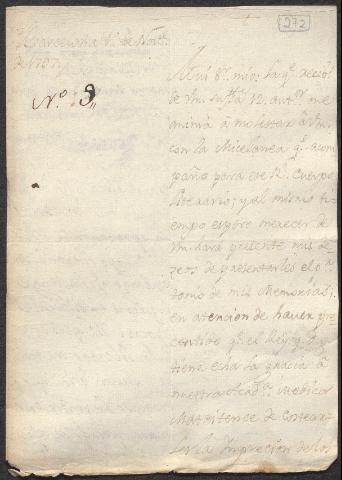 272
Barcelona 1º de Nov.e
de 1757.
Nº 3,,
Mui Sr. mio: la qe. recivi
de Vm. su fha 12. ant.or me
anima á molestar á Vm.
con la Micelanea qe. acom
paño para ese Rl. Cuerpo
Literario; y al mismo ti-
empo espero merecer de
Vm. hará presente mis de
zeos de presentarles el 
tomo de mis Memorias;
en atencion de haver pre
centido qe. el Rey
tiene echa la gracia á
nuestra Acad.a Medica
Matritense de costear
les la Imprecion de los